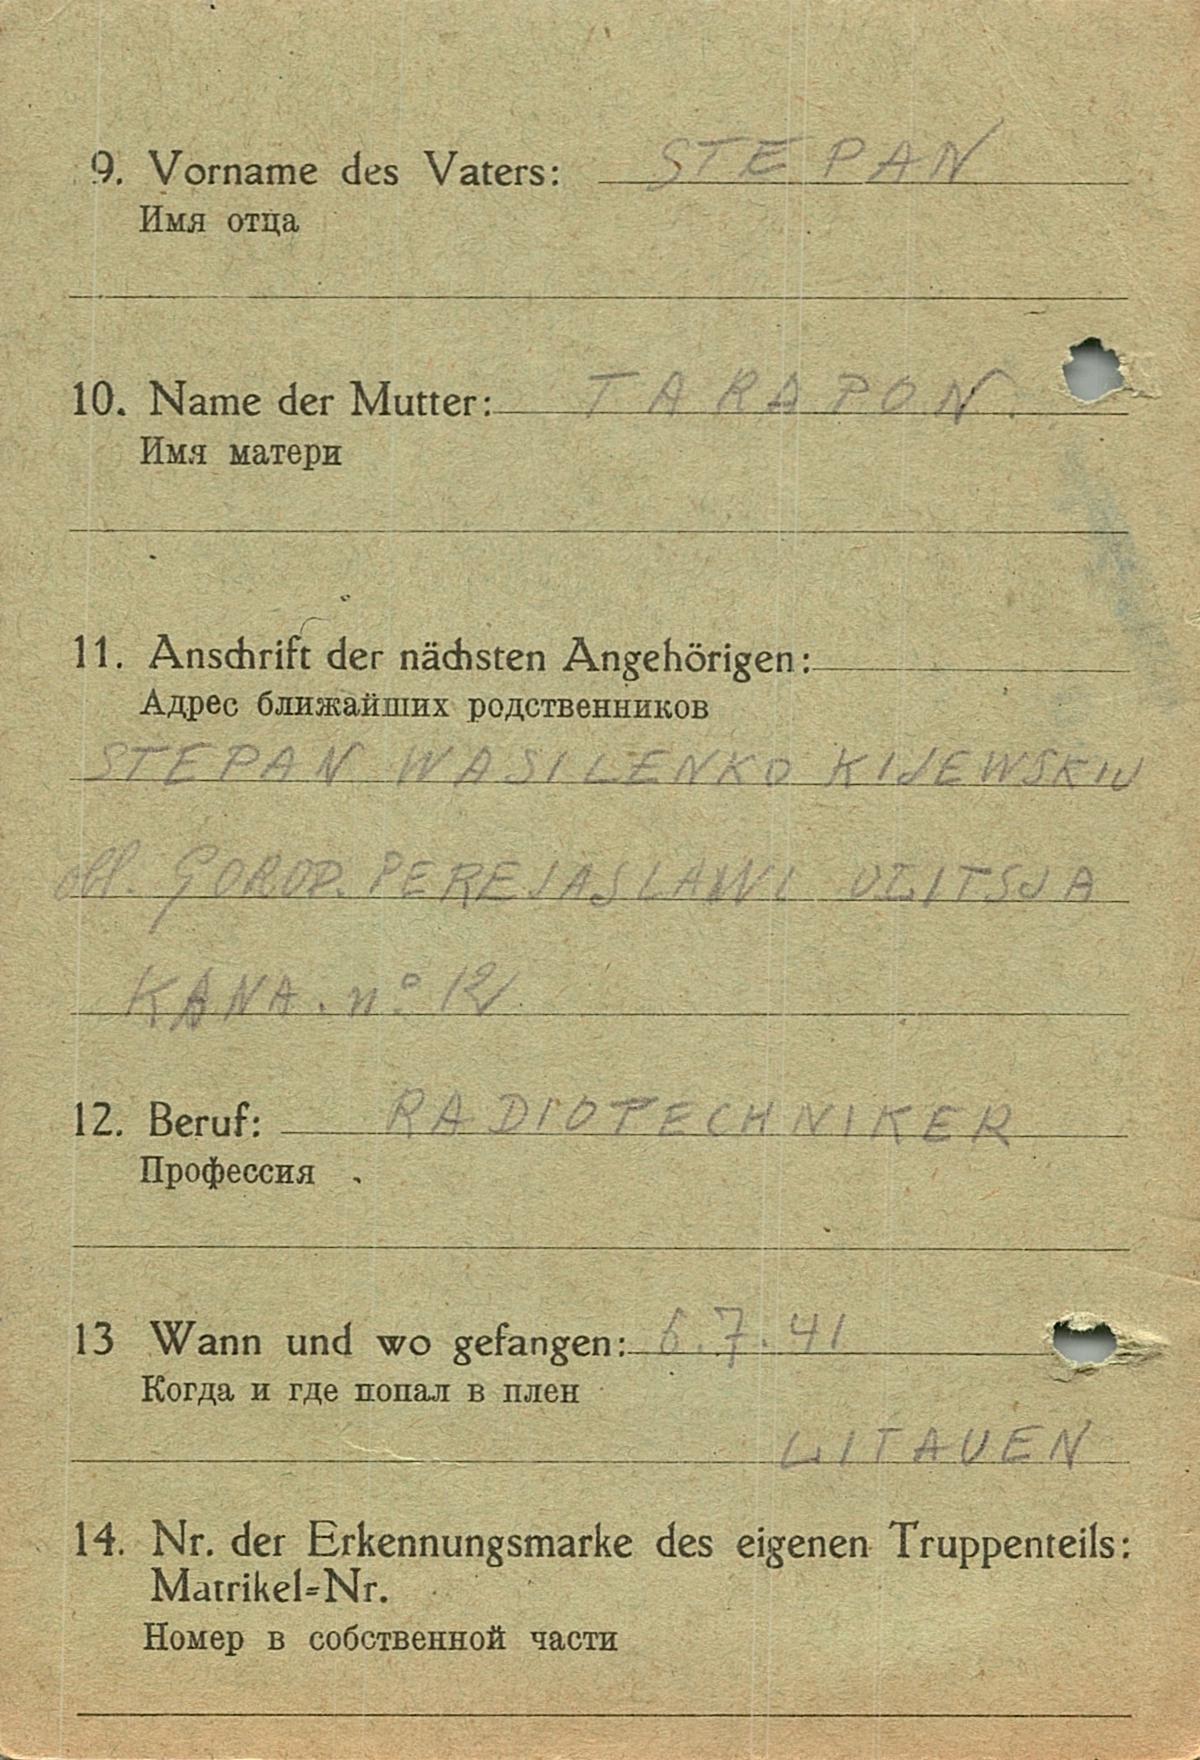 9. Vorname des Vaters: STEPAN
Имя отца
10. Name der Mutter: TARAPON.
Имя матери
11. Anschrift der nächsten Angehörigen:
Адрес ближайших родственников
STEPAN WASILENKO KIJEWSKIJ
obl. GOROD. PEREJASLAWL ULITSJA
KANA. nº 12
12. Beruf: RADIOTECHNIKER
Профессия
13 Wann und wo gefangen: 6.7.41
Когда и где попал в плен
LITAUEN
14. Nr. der Erkennungsmarke des eigenen Truppenteils:
Matrikel=Nr.
Номер в собственной части